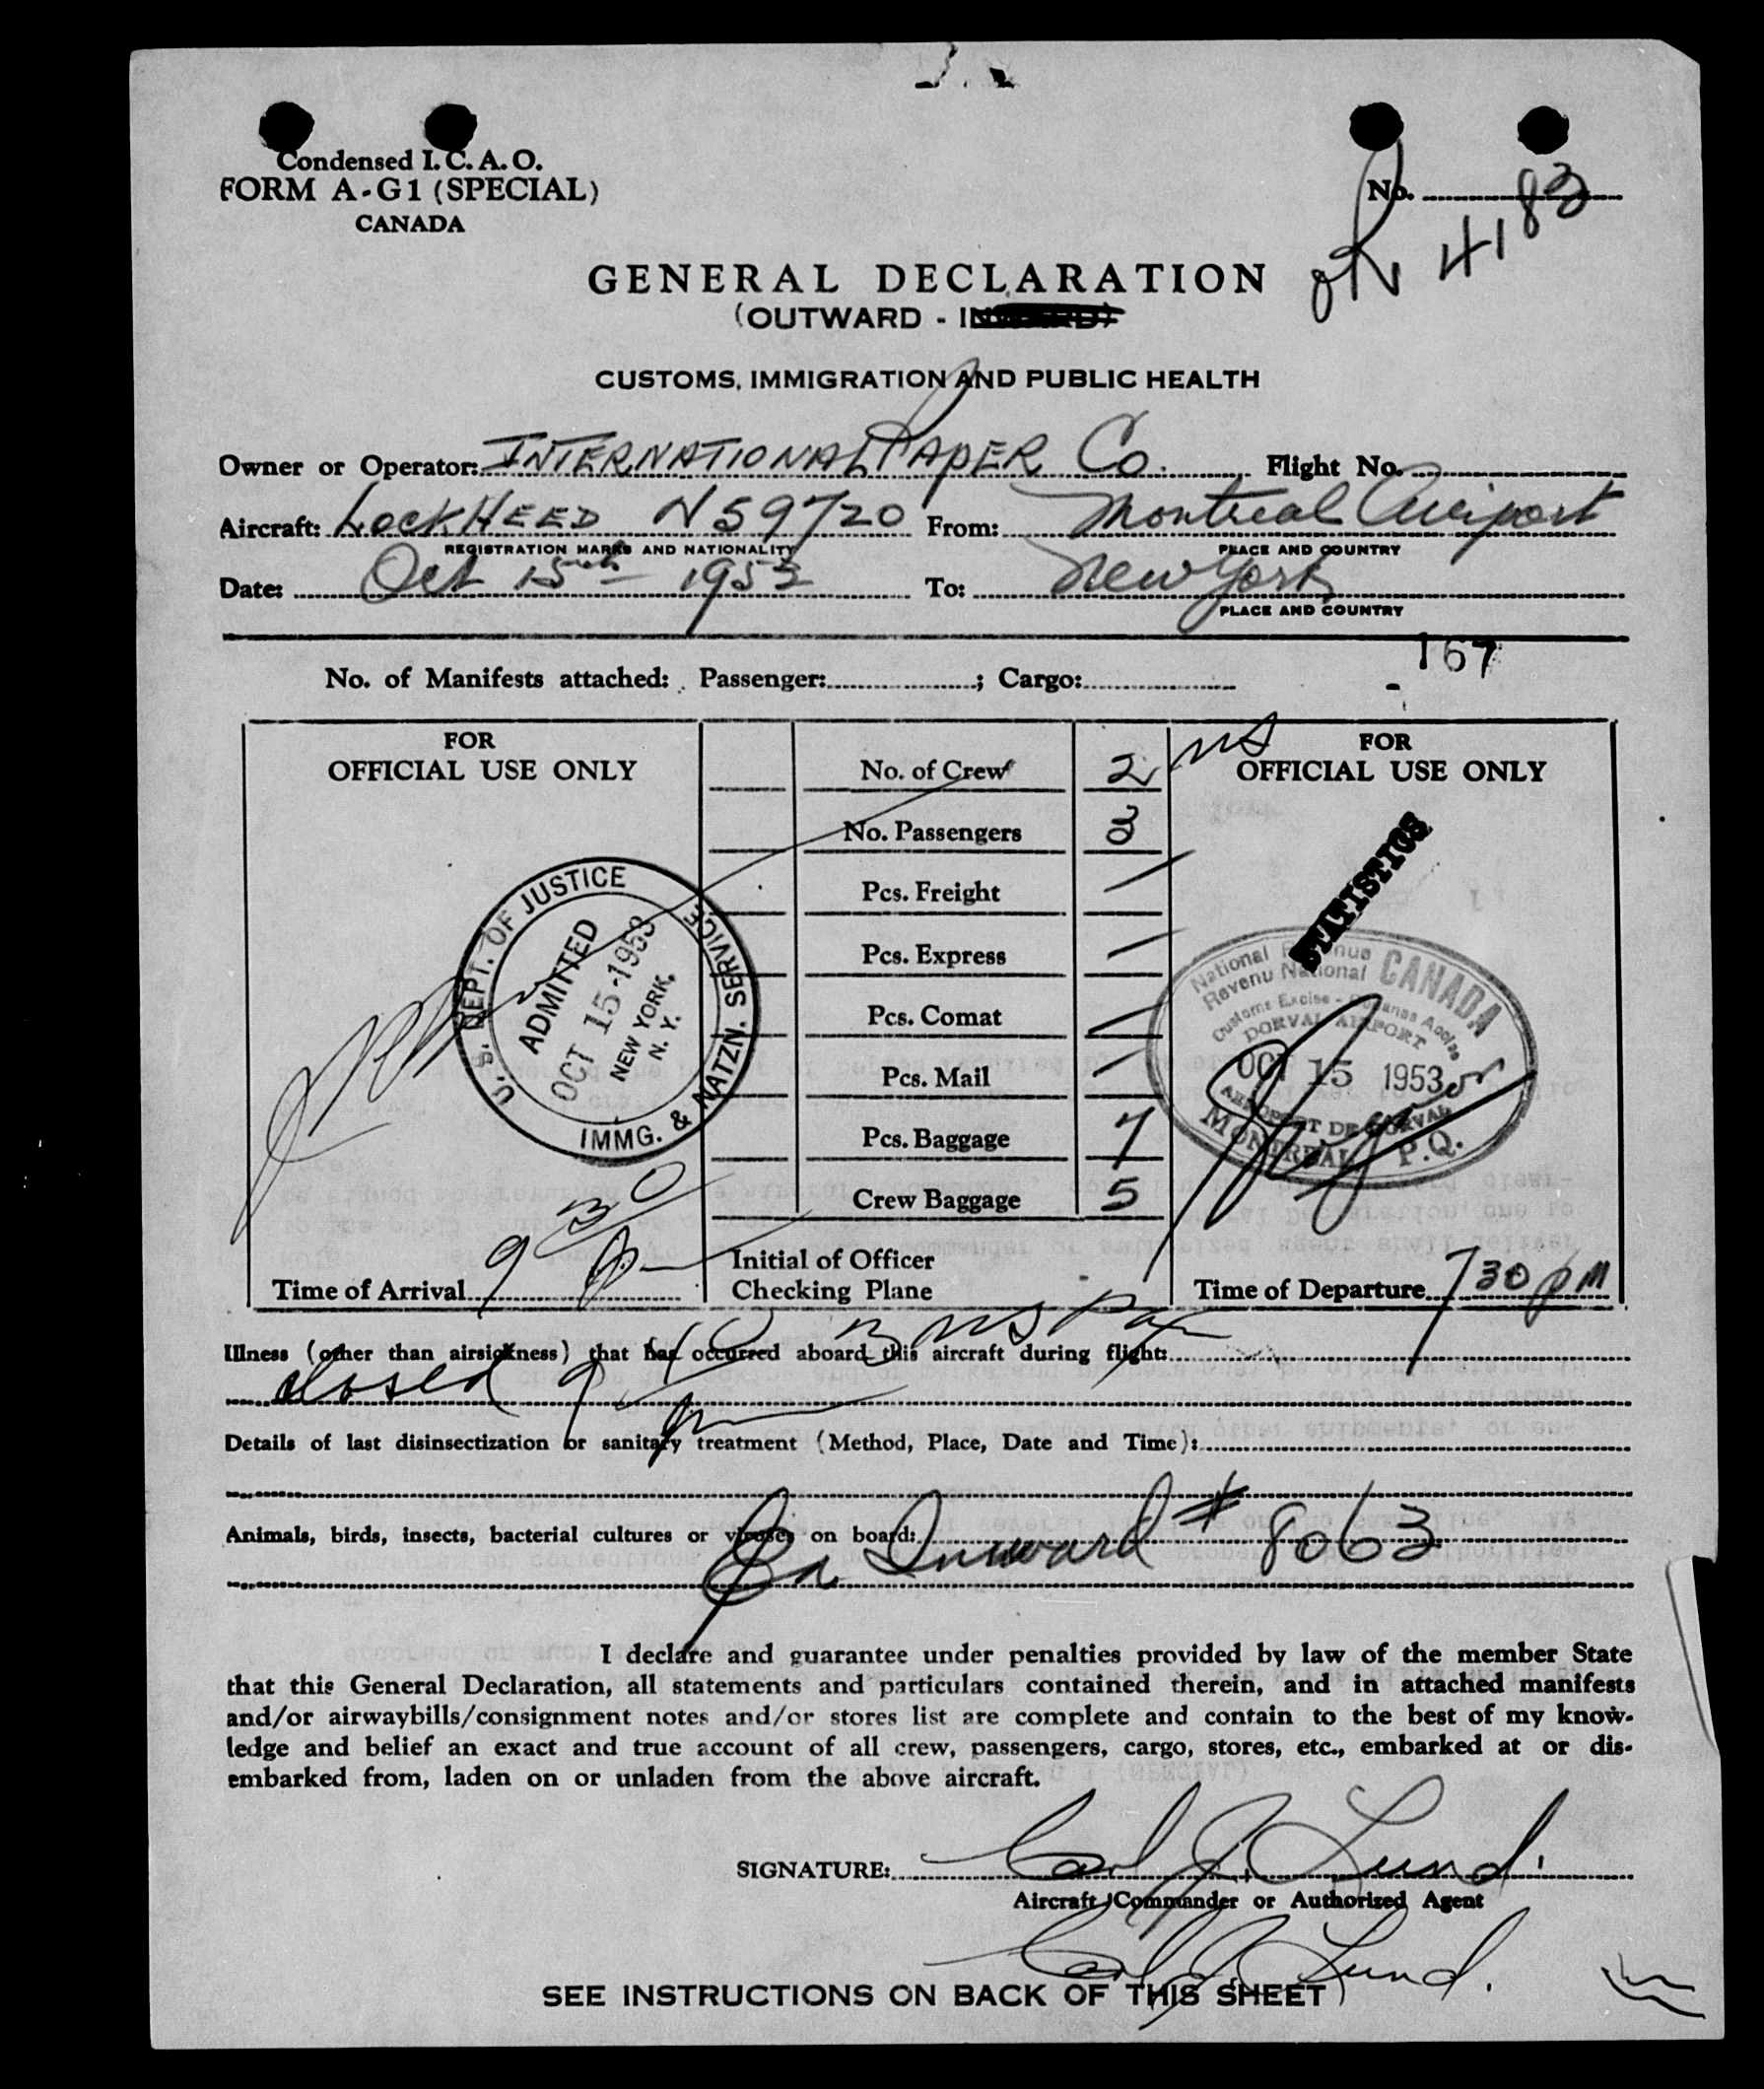 Condensed I. C. A. O.
FORM A-G1 (SPECIAL)
CANADA
No.
OK 4183
GENERAL DECLARATION
(OUTWARD - INWARD)
CUSTOMS, IMMIGRATION AND PUBLIC HEALTH
Owner or Operator: INTERNATIONAL PAPER Co. Flight No.
Aircraft: LOCKHEED N59720 From: Montreal Airport
REGISTRATION MARKS AND NATIONALITY PLACE AND COUNTRY
Date: Oct 15th 1953 To: New York
PLACE AND COUNTRY
167
No. of Manifests attached: Passenger: ; Cargo:
FOR
OFFICIAL USE ONLY
U. S. DEPT. OF JUSTICE
ADMITTED
OCT 15 1953
NEW YORK,
N. Y.
IMMG. & NATZN. SERVICE
Time of Arrival 9 30
No. of Crew 2
No. Passengers 3
Pcs. Freight
Pcs. Express
Pcs. Comat
Pcs. Mail
Pcs. Baggage 7
Crew Baggage 5
Initial of Officer
Checking Plane
FOR
OFFICIAL USE ONLY
STATISTICS
National Revenue
Revenu National
CANADA
Customs-Excise - Douanes Accise
DORVAL AIRPORT
OCT 15 1953
AEROPORT DE DORVAL
MONTREAL P.Q.
Time of Departure 7 30 PM
Illness (other than airsickness) that has occurred aboard this aircraft during flight:
closed 9
Details of last disinsectization or sanitary treatment (Method, Place, Date and Time):
Animals, birds, insects, bacterial cultures or viruses on board:
Inward # 8063
I declare and guarantee under penalties provided by law of the member State
that this General Declaration, all statements and particulars contained therein, and in attached manifests
and/or airwaybills/consignment notes and/or stores list are complete and contain to the best of my know-
ledge and belief an exact and true account of all crew, passengers, cargo, stores, etc., embarked at or dis-
embarked from, laden on or unladen from the above aircraft.
SIGNATURE: Carl J. Lund.
Aircraft Commander or Authorized Agent
Carl J. Lund.
SEE INSTRUCTIONS ON BACK OF THIS SHEET